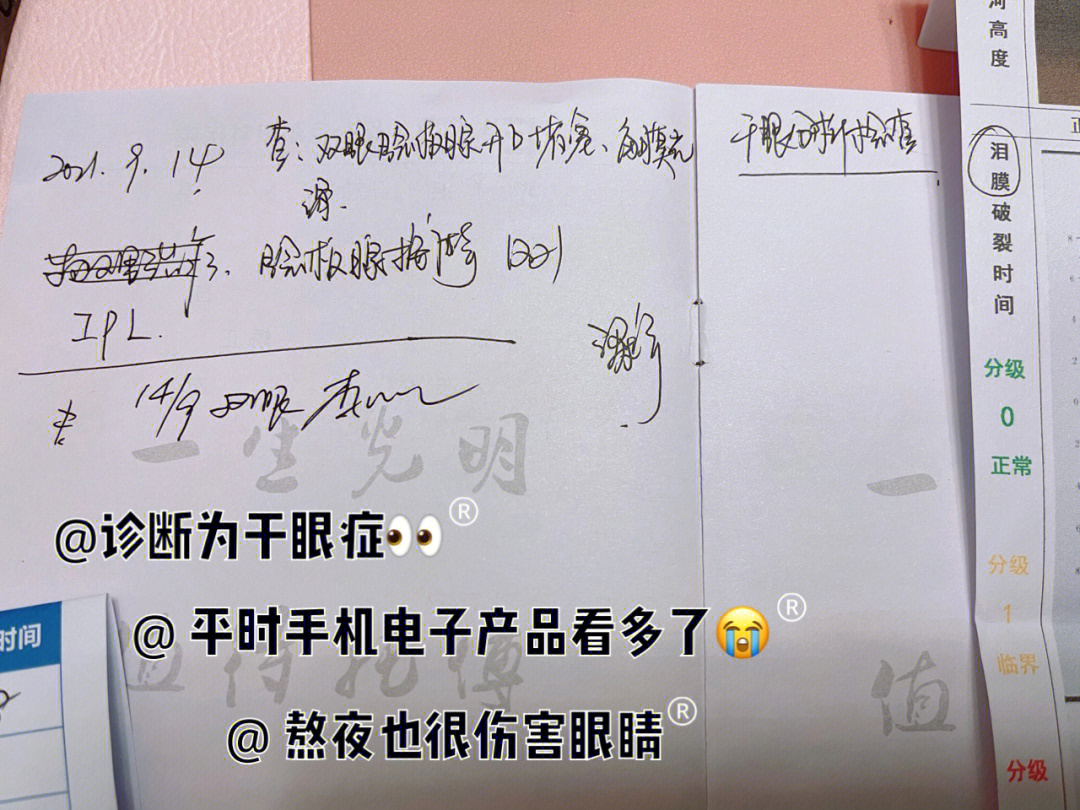 2021.9.14 查：双眼睑板腺开口堵塞、角膜光
滑.
睑板腺按摩
IPL.
14/9 双眼
干眼分析检查
一生光明
值得托博
一
值
时间
河高度
泪膜破裂时间
分级
0
正常
分级
1
临界
分级
@诊断为干眼症👀®
@ 平时手机电子产品看多了😭®
@ 熬夜也很伤害眼睛®